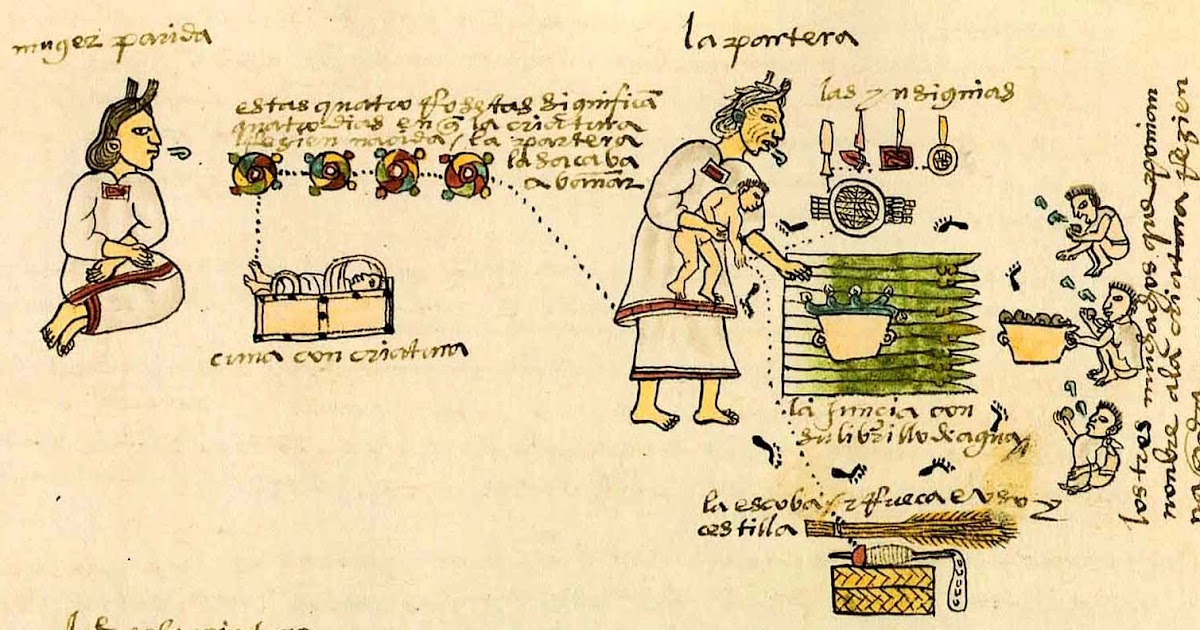 muger parida
la partera
estas quatro rosetas significā
quatro dias en q̄ la criatura
rrezien nacida / la partera
la sacaba
a bañar
las ynsignias
cuna con criatura
la juncia con
su librillo de agua
la escoba / y rrueca e uso y
cestilla
los tres muchachos que nonbran
nonbre a la criatura rrezien